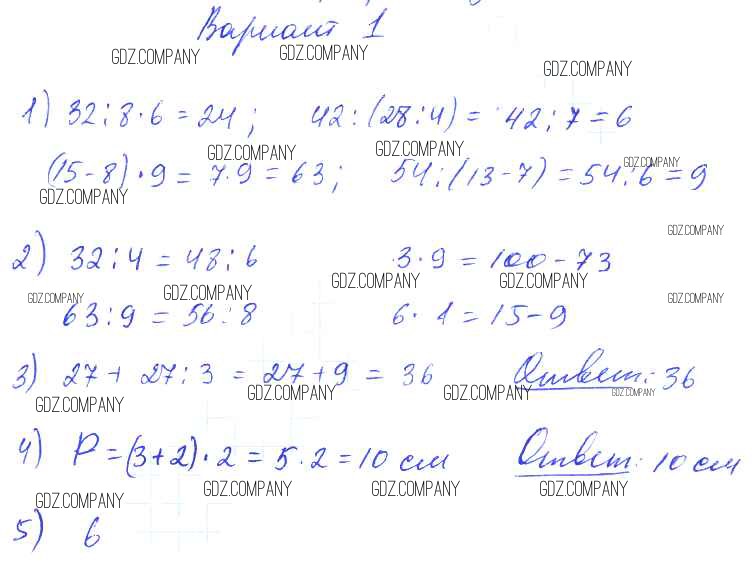 Вариант 1
GDZ.COMPANY GDZ.COMPANY GDZ.COMPANY
1) 32:8·6=24; 42:(28:4)= 42:7=6
GDZ.COMPANY GDZ.COMPANY GDZ.COMPANY
(15-8)·9=7·9=63; 54:(13-7)=54:6=9
GDZ.COMPANY GDZ.COMPANY
2) 32:4=48:6 3·9=100-73
GDZ.COMPANY GDZ.COMPANY GDZ.COMPANY GDZ.COMPANY GDZ.COMPANY
63:9=56:8 6·1=15-9
3) 27+27:3=27+9=36 Ответ: 36
GDZ.COMPANY GDZ.COMPANY GDZ.COMPANY GDZ.COMPANY
4) P=(3+2)·2=5·2=10 см Ответ: 10 см
GDZ.COMPANY GDZ.COMPANY GDZ.COMPANY GDZ.COMPANY
5) 6